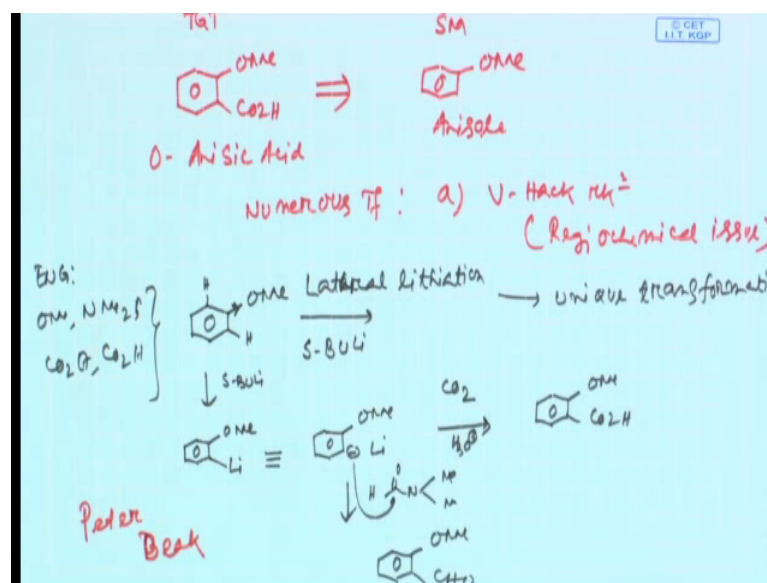 TGT SM
© CET
I.I.T. KGP
OMe OMe
CO2H
Anisole
O- Anisic Acid
Numerous Tf: a) V-Hack rxn
(Regiochemical issue)
EWG:
OMe, NMe2,
CO2Et, CO2H
H OMe Lateral lithiation → unique transformati
H S-BuLi
↓ S-BuLi
OMe OMe CO2 OMe
Li ≡ ⊖ Li H3O⊕ CO2H
H O N Me
Me
Peter
Beak
OMe
CHO